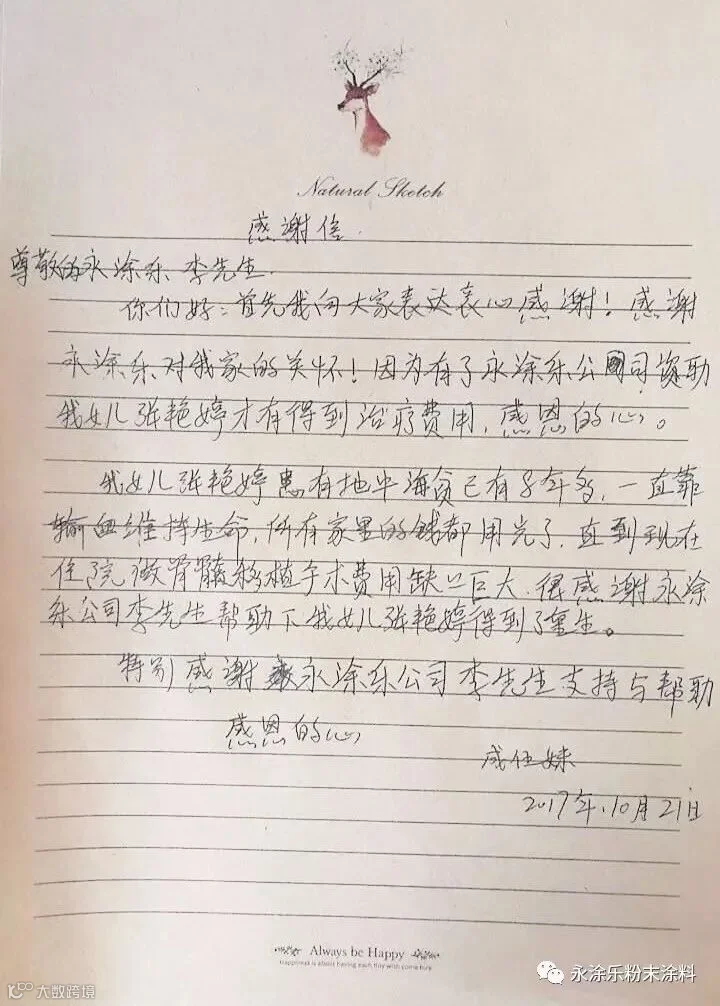 Natural Sketch
感谢信.
尊敬的永涂乐 李先生.
你们好：首先我向大家表达衷心感谢！感谢
永涂乐对我家的关怀！因为有了永涂乐公司资助
我女儿张艳婷才有得到治疗费用，感恩的心。
我女儿张艳婷患有地中海贫已有8年多，一直靠
输血维持生命，所有家里的钱都用光了，直到现在
住院做骨髓移植手术费用缺口巨大.很感谢永涂
乐公司李先生帮助下我女儿张艳婷得到了重生。
特别感谢永涂乐公司李先生支持与帮助
感恩的心
2017年10月21日
Always be Happy
永涂乐粉末涂料
大数跨境